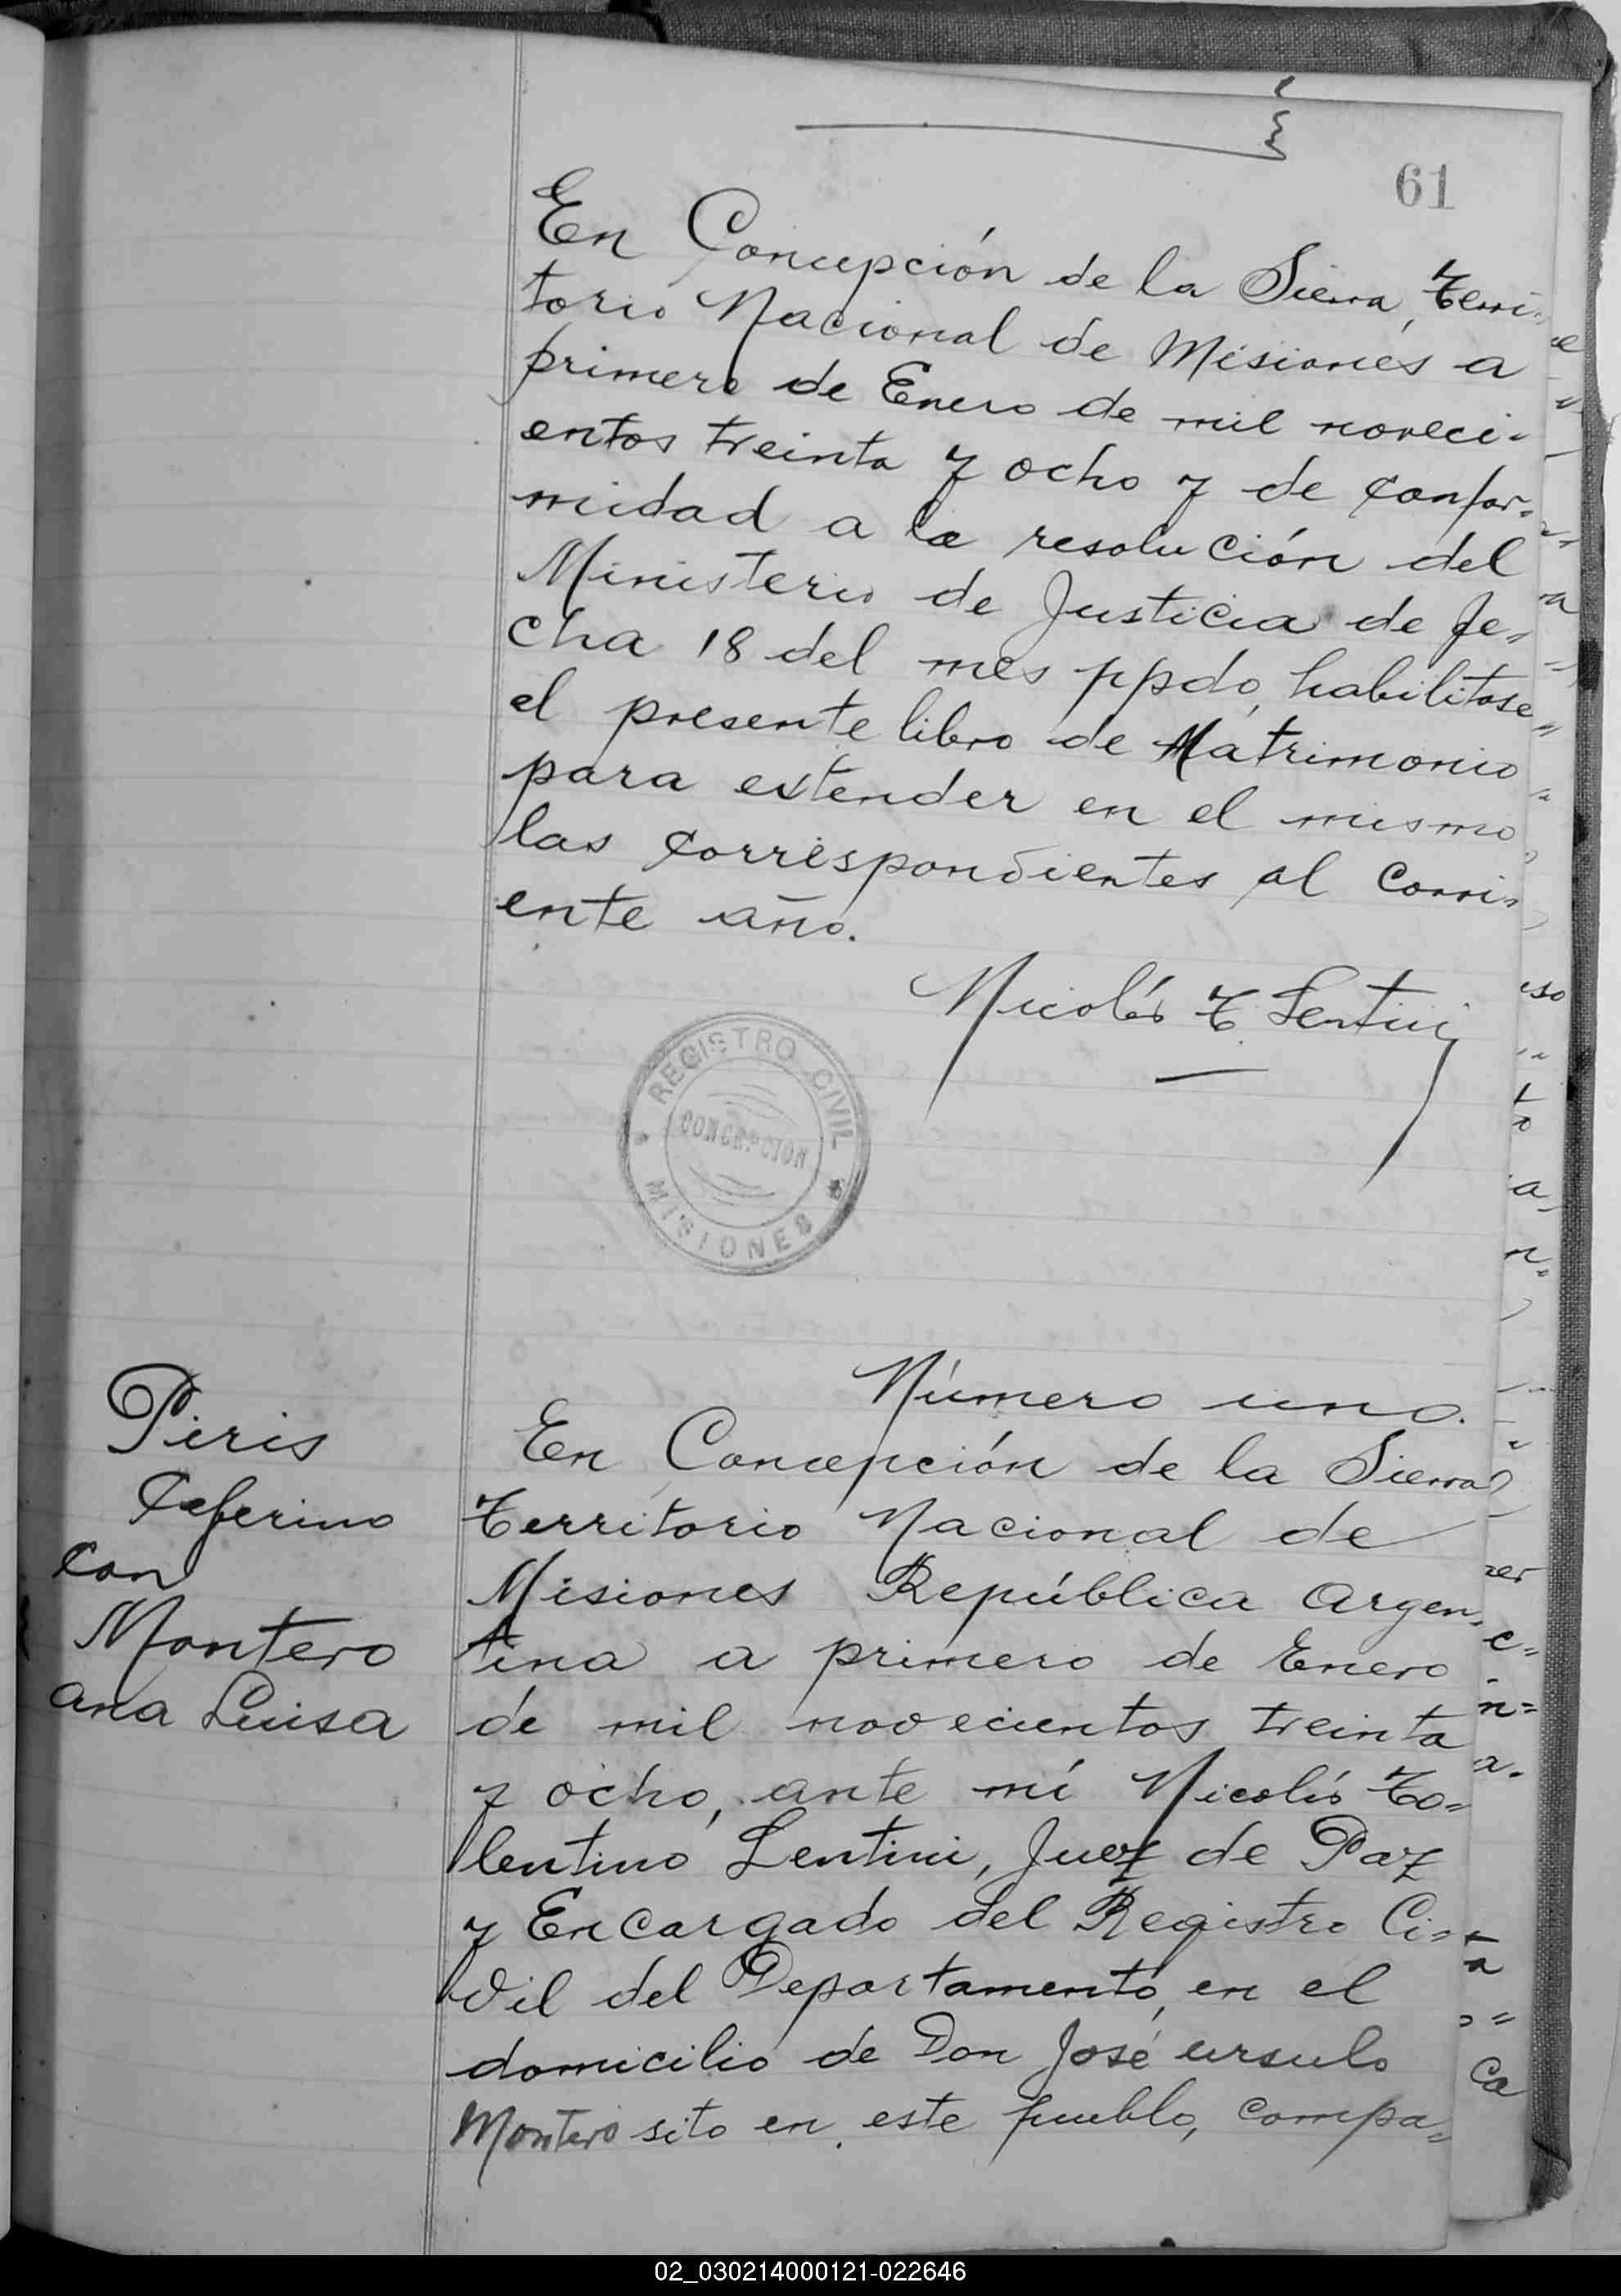 61
En Concepción de la Sierra, Terri-
torio Nacional de Misiones a
primero de Enero de mil noveci-
entos treinta y ocho y de confor-
midad a la resolución del
Ministerio de Justicia de fe-
cha 18 del mes ppdo, habilitase
el presente libro de Matrimonio
para extender en el mismo
las correspondientes al corri-
ente año.
Nicolás T. Lentini
REGISTRO CIVIL
CONCEPCION
MISIONES
Número uno.
Piris
Ceferino
con
Montero
Ana Luisa
En Concepción de la Sierra
Territorio Nacional de
Misiones República Argen-
tina a primero de Enero
de mil novecientos treinta
y ocho, ante mí Nicolás To-
lentino Lentini, Juez de Paz
y Encargado del Registro Ci-
vil del Departamento, en el
domicilio de Don José Ursulo
Montero sito en este pueblo, compa-
02_030214000121-022646